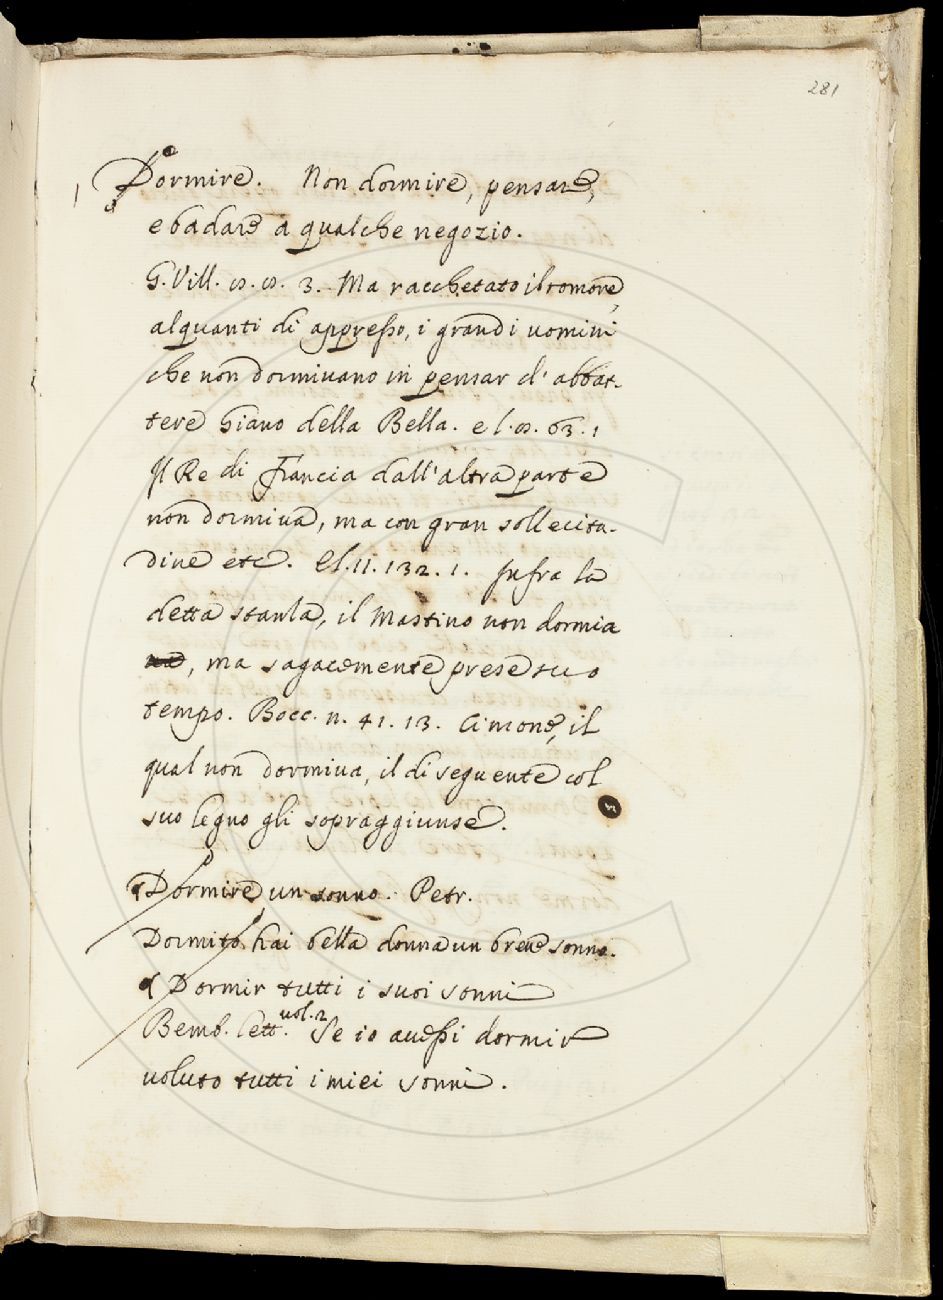 281
Dormire. Non dormire, pensare,
e badare a qualche negozio.
G. Vill. 8. 8. 3. Ma racchetato il romore,
alquanti di appresso, i grandi uomini
che non dormivano in pensar d'abbat-
tere Giano della Bella. e l. 8. 63. 1
Il Re di Francia dall'altra parte
non dormiva, ma con gran sollecitu-
dine etc. El. 11. 132. 1. Infra la
detta stanla, il Mastino non dormia
, ma sagacemente prese suo
tempo. Bocc. n. 41. 13. Cimone, il
qual non dormiva, il di seguente col
suo legno gli sopraggiunse.
Dormire un sonno. Petr.
Dormito hai bella donna un breve sonno.
Dormir tutti i suoi sonni
Bemb. lett. vol. 2 Se io avessi dormir
voluto tutti i miei sonni.